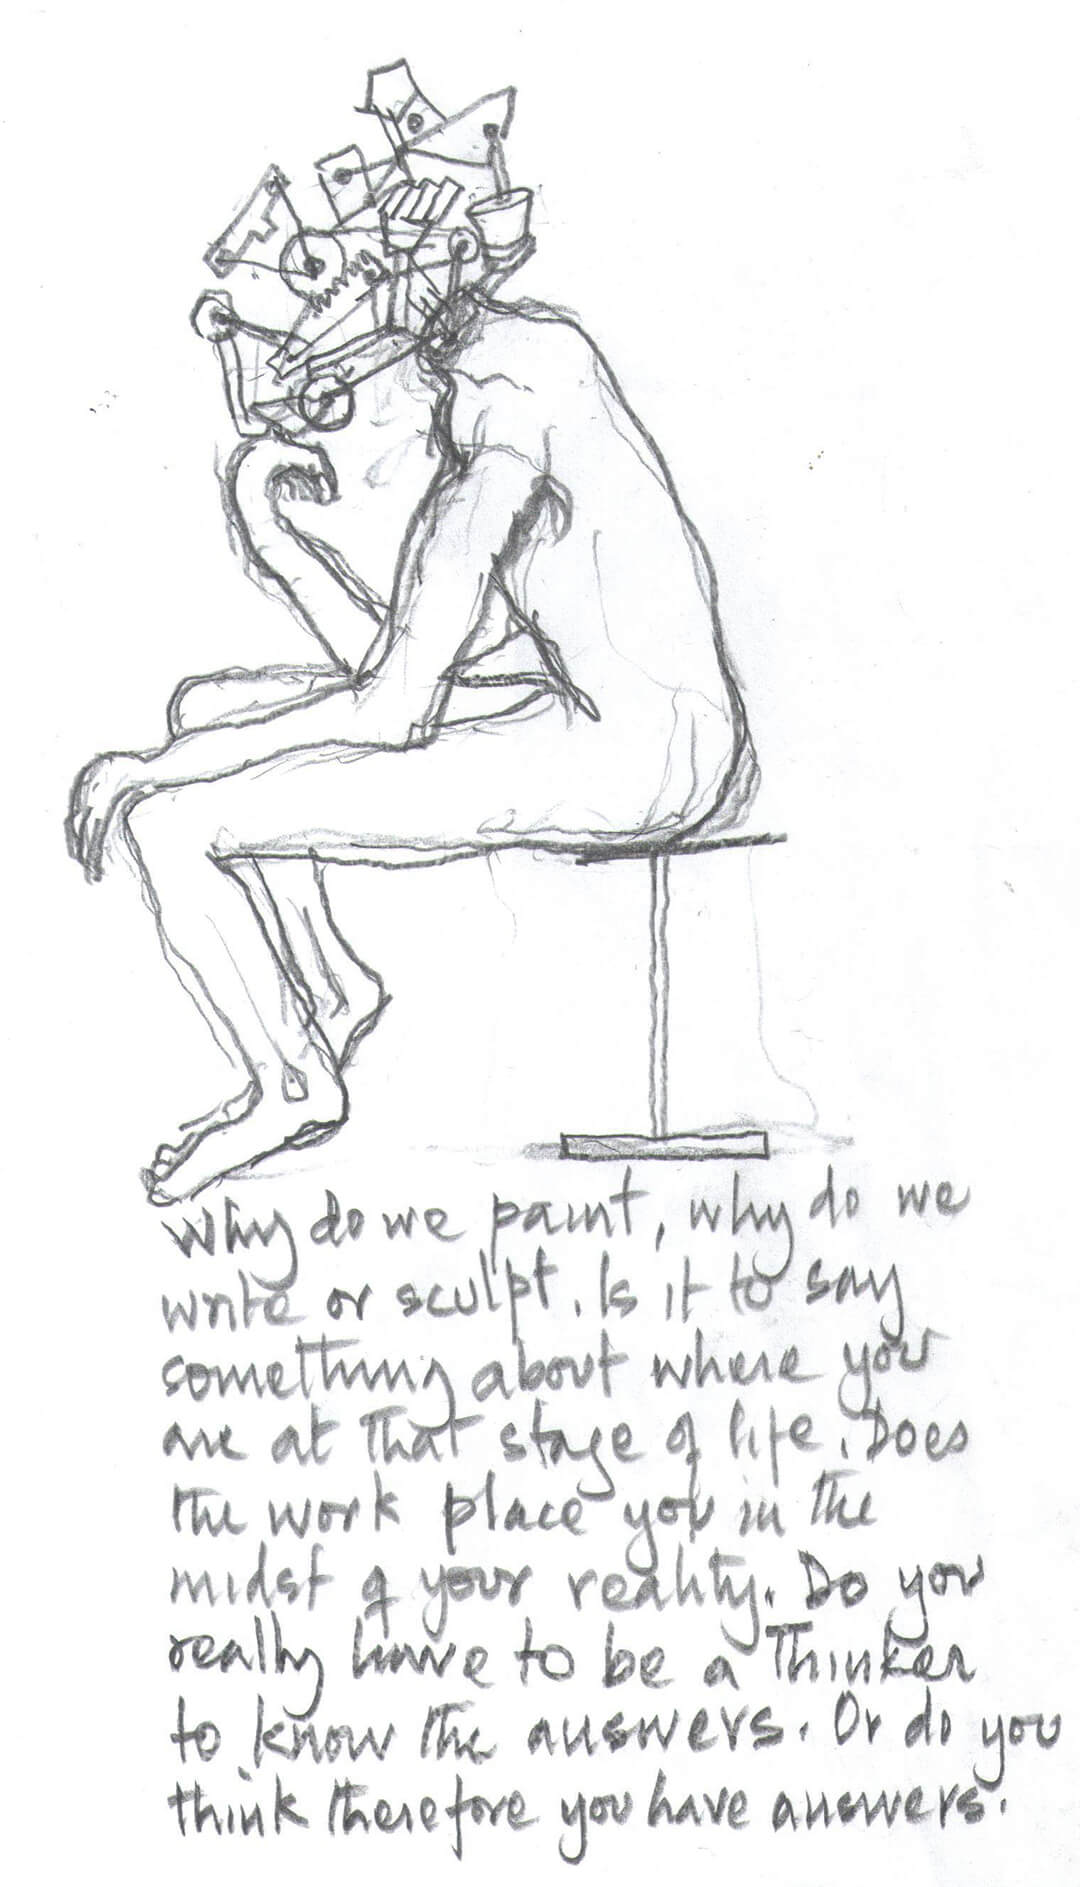 Why do we paint, why do we
write or sculpt. Is it to say
something about where you
are at that stage of life. Does
the work place you in the
midst of your reality. Do you
really have to be a Thinker
to know the answers. Or do you
think therefore you have answers.